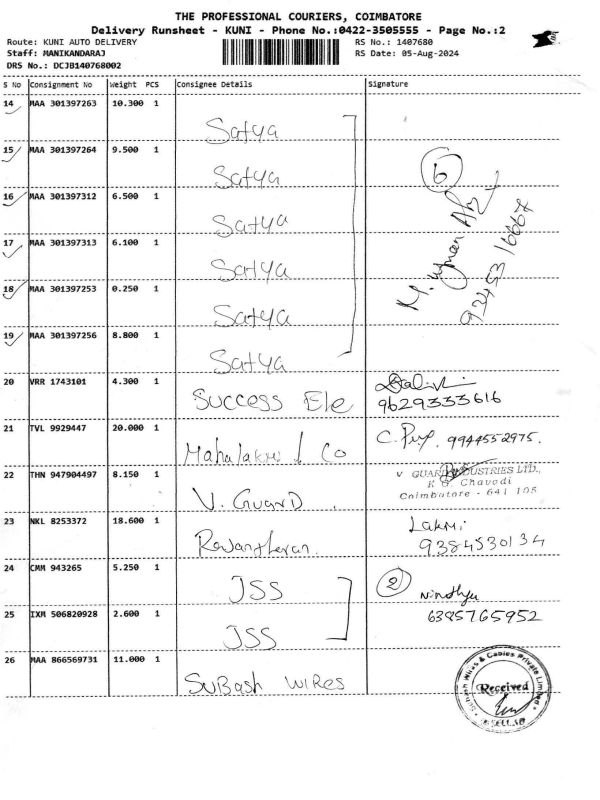 THE PROFESSIONAL COURIERS, COIMBATORE
Delivery Runsheet - KUNI - Phone No.:0422-3505555 - Page No.:2
Route: KUNI AUTO DELIVERY RS No.: 1407680
Staff: MANIKANDARAJ RS Date: 05-Aug-2024
DRS No.: DCJB140768002
S No Consignment No Weight PCS Consignee Details Signature
14 MAA 301397263 10.300 1
Satya
15 MAA 301397264 9.500 1
Satya 6
16 MAA 301397312 6.500 1
Satya
17 MAA 301397313 6.100 1
Satya
18 MAA 301397253 0.250 1
Satya
19 MAA 301397256 8.800 1
Satya
20 VRR 1743101 4.300 1
Success Ele 9629333616
21 TVL 9929447 20.000 1
Mahalakmi & Co 9944552975.
22 THN 947904497 8.150 1
V GUARD INDUSTRIES LTD.,
Chavadi
V. Guard Coimbatore - 641 105
23 NKL 8253372 18.600 1
Lakmi
9384530134
24 CMM 943265 5.250 1
JSS 2
25 IXM 506820928 2.600 1 6385765952
JSS
26 MAA 866569731 11.000 1
Subash Wires
Subash Wires & Cables Private Limited
Received